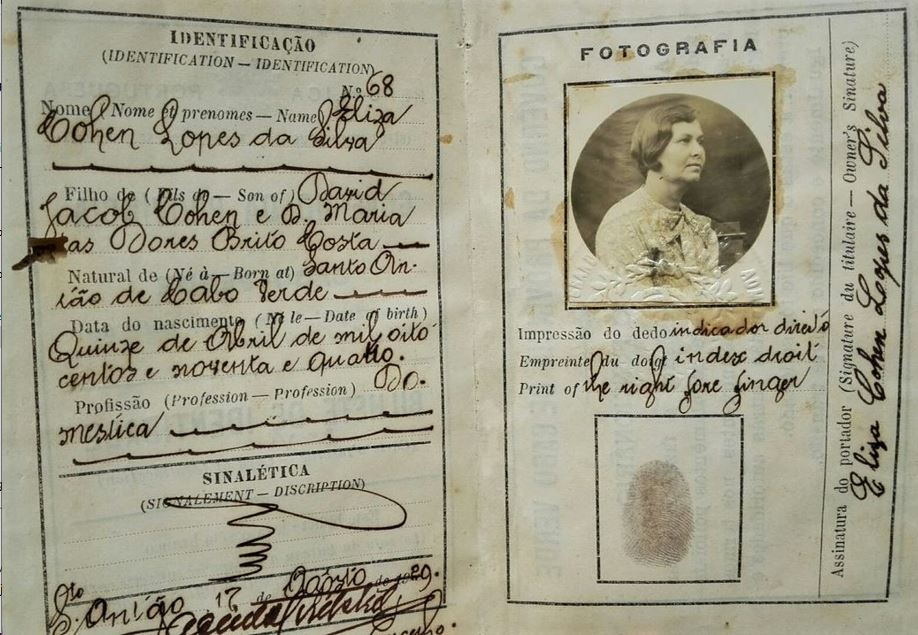 IDENTIFICAÇÃO
(IDENTIFICATION — IDENTIFICATION)
Nº 68
Nome (Nome et prenomes — Name) Eliza
Cohen Lopes da Silva
Filho de (Fils de — Son of) David
Jacob Cohen e D. Maria
das Dores Brito Costa
Natural de (Né à — Born at) Santo An-
tão de Cabo Verde
Data do nascimento (Né le — Date of birth)
Quinze de Abril de mil oito
centos e noventa e quatro.
Profissão (Profession — Profession) Do-
mestica
SINALÉTICA
(SIGNALEMENT — DISCRIPTION)
Sto Antão 17 de Agosto de 1929.
FOTOGRAFIA
Impressão do dedo indicador direito
Empreinte du doigt index droit
Print of the right fore finger
Assinatura do portador (Signature du titulaire — Owner's Sinature)
Eliza Cohen Lopes da Silva